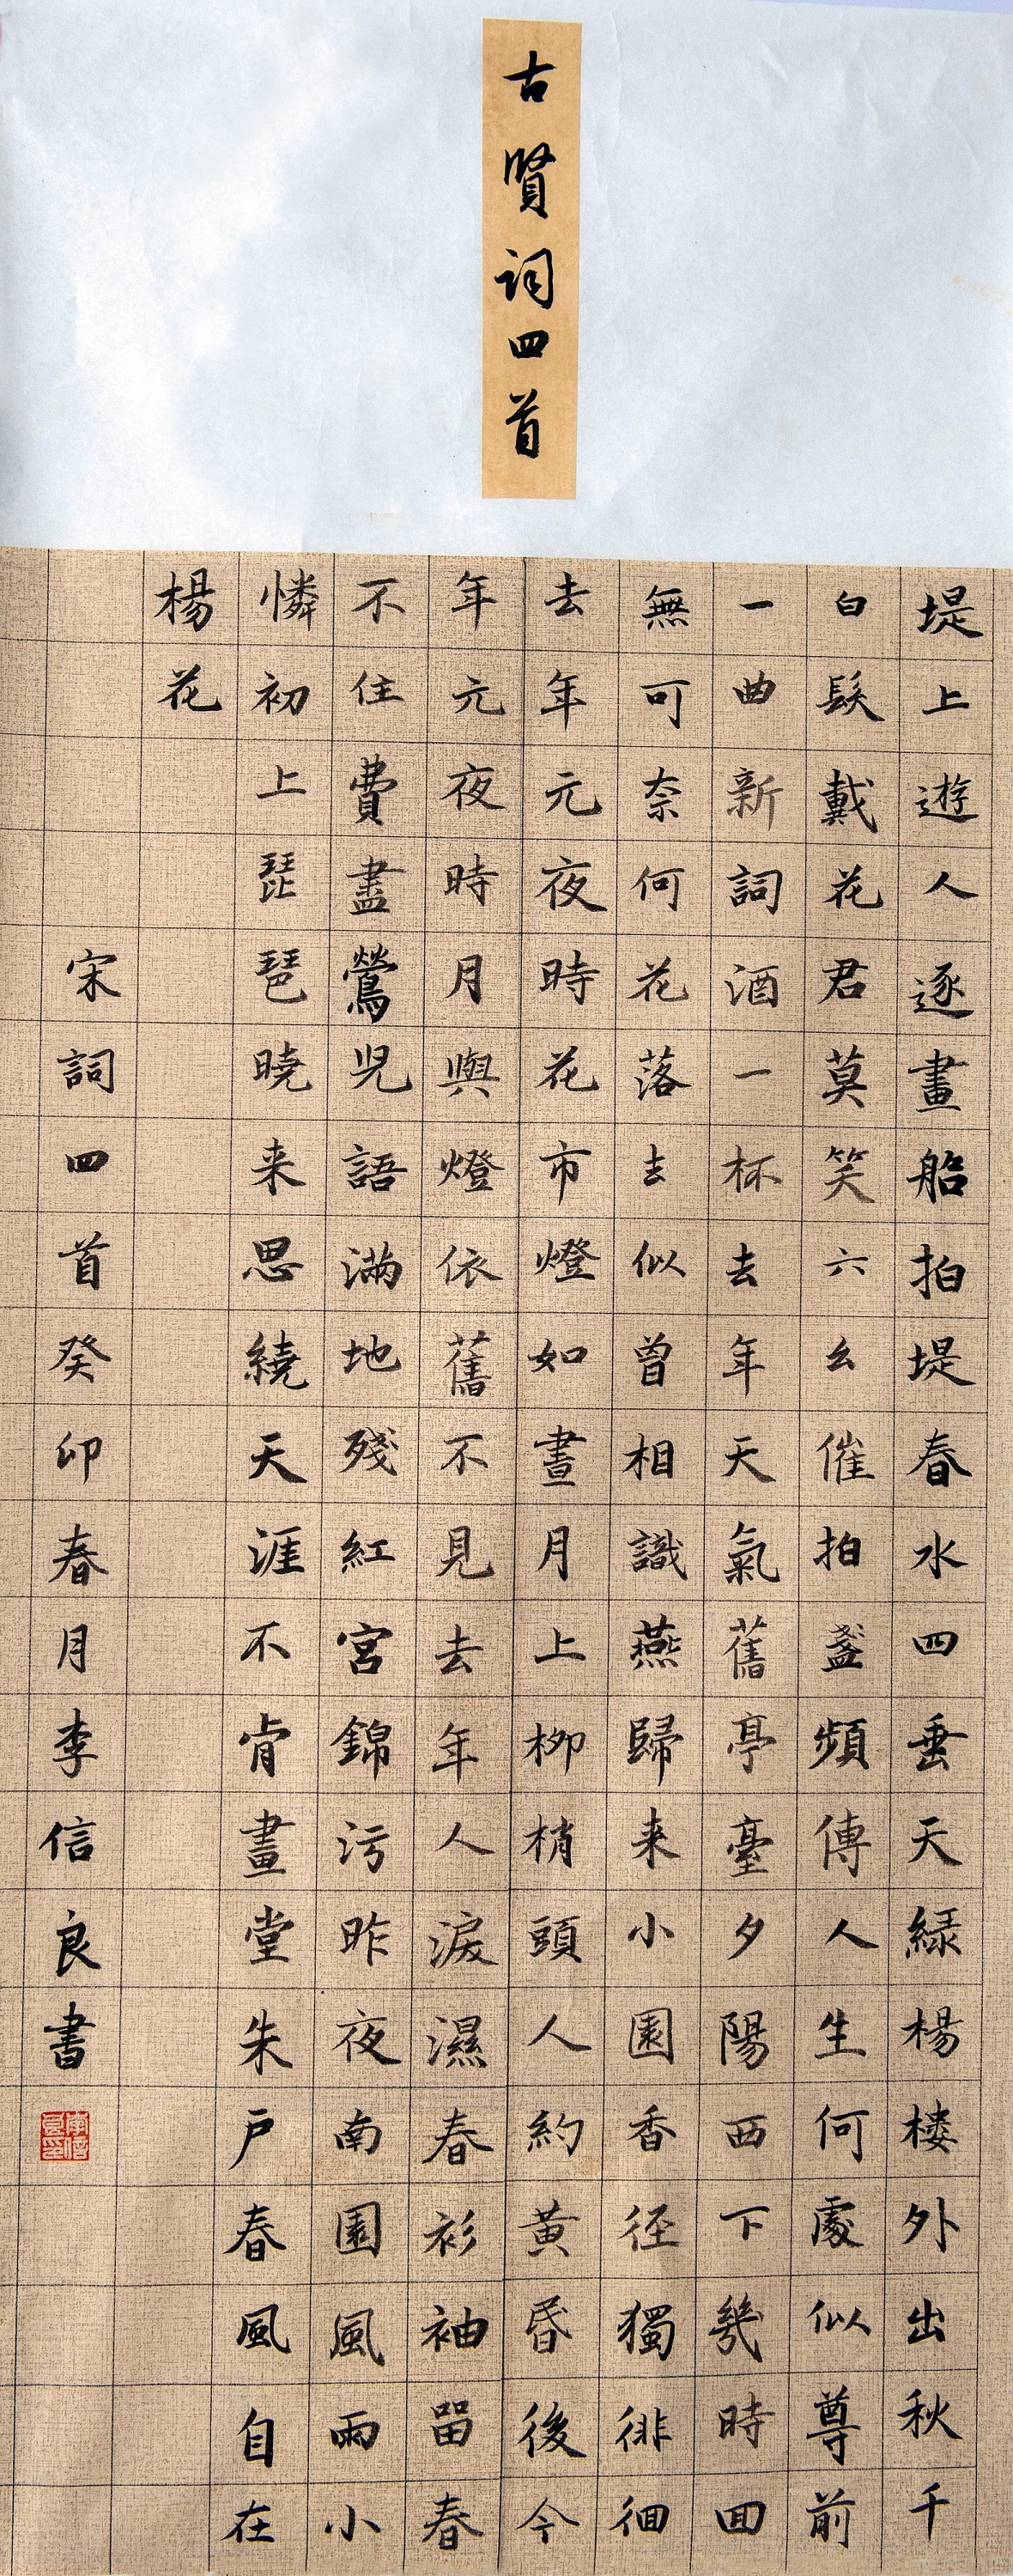 古賢詞四首
堤上遊人逐畫船拍堤春水四垂天緑楊楼外出秋千
白髮戴花君莫笑六幺催拍盞頻傳人生何處似尊前
一曲新詞酒一杯去年天氣舊亭臺夕陽西下幾時回
無可奈何花落去似曾相識燕歸来小園香徑獨徘徊
去年元夜時花市燈如晝月上柳梢頭人約黄昏後今
年元夜時月與燈依舊不見去年人淚濕春衫袖留春
不住費盡鶯児語滿地殘紅宮錦污昨夜南園風雨小
憐初上琵琶曉来思繞天涯不肯畫堂朱户春風自在
楊花
宋詞四首癸卯春月李信良書